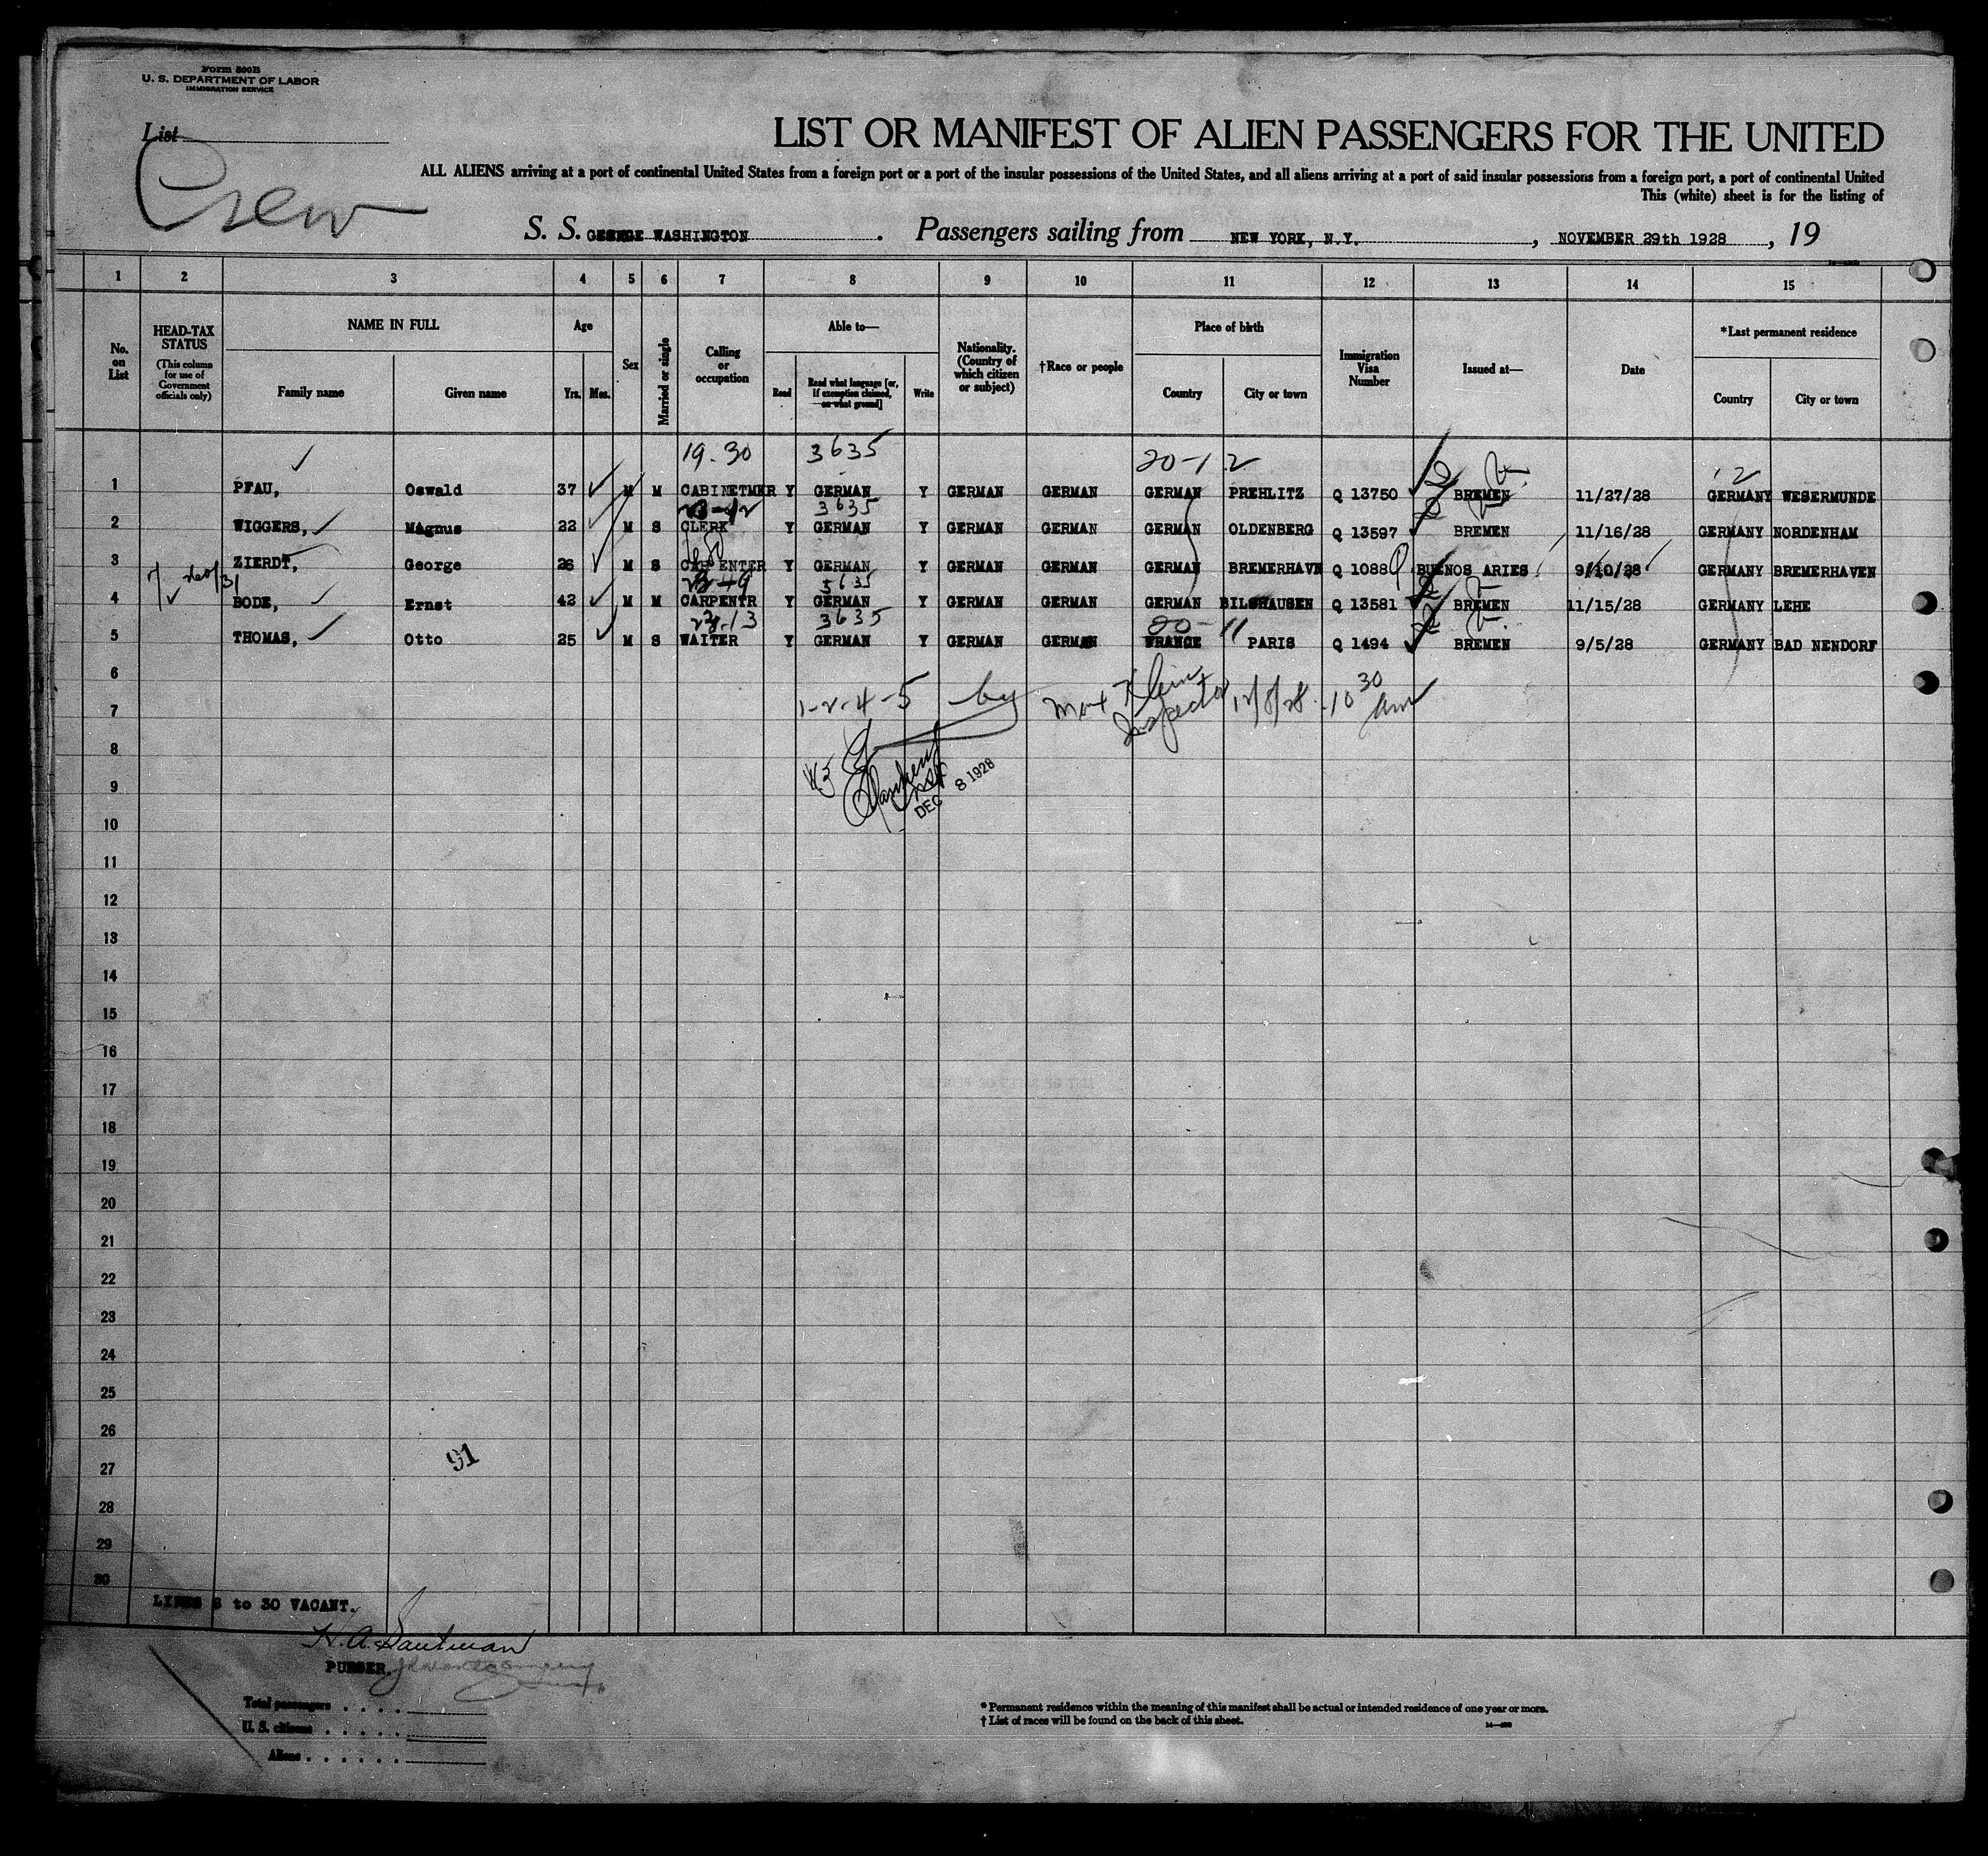 Form 500B
U. S. DEPARTMENT OF LABOR
IMMIGRATION SERVICE
List
Crew
LIST OR MANIFEST OF ALIEN PASSENGERS FOR THE UNITED
ALL ALIENS arriving at a port of continental United States from a foreign port or a port of the insular possessions of the United States, and all aliens arriving at a port of said insular possessions from a foreign port, a port of continental United
This (white) sheet is for the listing of
S. S. GEORGE WASHINGTON. Passengers sailing from NEW YORK, N.Y., NOVEMBER 29th 1928, 19
1 2 3 4 5 6 7 8 9 10 11 12 13 14 15
No. on List
HEAD-TAX STATUS (This column for use of Government officials only)
NAME IN FULL
Family name Given name
Age
Yrs. Mos.
Sex
Married or single
Calling or occupation
Able to—
Read Read what language [or, if exemption claimed, on what ground] Write
Nationality. (Country of which citizen or subject)
†Race or people
Place of birth
Country City or town
Immigration Visa Number
Issued at—
Date
*Last permanent residence
Country City or town
19-30 3635 20-12
1 PFAU, Oswald 37 M M CABINETMKR Y GERMAN Y GERMAN GERMAN GERMAN PREHLITZ Q 13750 BREMEN 11/27/28 GERMANY WESERMUNDE
3635
2 WIGGERS, Magnus 22 M S CLERK Y GERMAN Y GERMAN GERMAN GERMAN OLDENBERG Q 13597 BREMEN 11/16/28 GERMANY NORDENHAM
3 ZIERDT, George 26 M S CARPENTER Y GERMAN Y GERMAN GERMAN GERMAN BREMERHAVN Q 1088 BUENOS ARIES 9/10/28 GERMANY BREMERHAVEN
4 BODE, Ernst 42 M M CARPENTR Y GERMAN Y GERMAN GERMAN GERMAN BILSHAUSEN Q 13581 BREMEN 11/15/28 GERMANY LEHE
3635 20-11
5 THOMAS, Otto 25 M S WAITER Y GERMAN Y GERMAN GERMAN FRANCE PARIS Q 1494 BREMEN 9/5/28 GERMANY BAD NENDORF
6
1-2-4-5 by Max Klein Inspector 12/8/28 - 10 30 am
7
8
9
DEC 8 1928
10
11
12
13
14
15
16
17
18
19
20
21
22
23
24
25
26
91
27
28
29
30
LINES 6 to 30 VACANT.
PURSER.
Total passengers
U. S. citizens
Aliens
* Permanent residence within the meaning of this manifest shall be actual or intended residence of one year or more.
† List of races will be found on the back of this sheet.